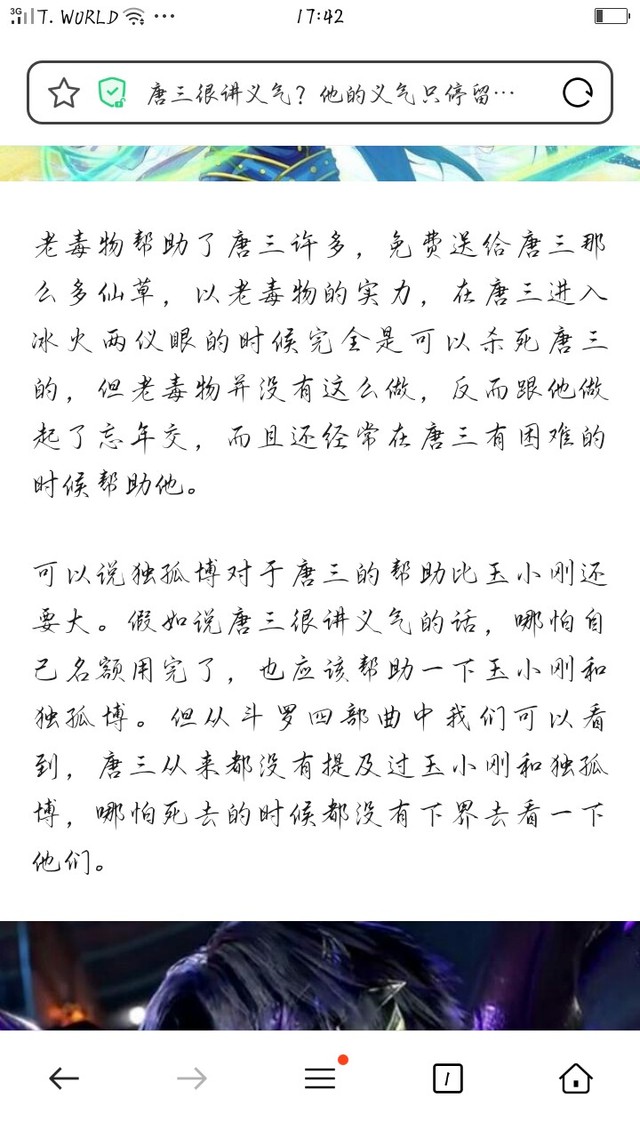 3G T. WORLD 17:42
唐三很讲义气？他的义气只停留…
老毒物帮助了唐三许多，免费送给唐三那
么多仙草，以老毒物的实力，在唐三进入
冰火两仪眼的时候完全是可以杀死唐三
的，但老毒物并没有这么做，反而跟他做
起了忘年交，而且还经常在唐三有困难的
时候帮助他。
可以说独孤博对于唐三的帮助比玉小刚还
要大。假如说唐三很讲义气的话，哪怕自
己名额用完了，也应该帮助一下玉小刚和
独孤博。但从斗罗四部曲中我们可以看
到，唐三从来都没有提及过玉小刚和独孤
博，哪怕死去的时候都没有下界去看一下
他们。
1